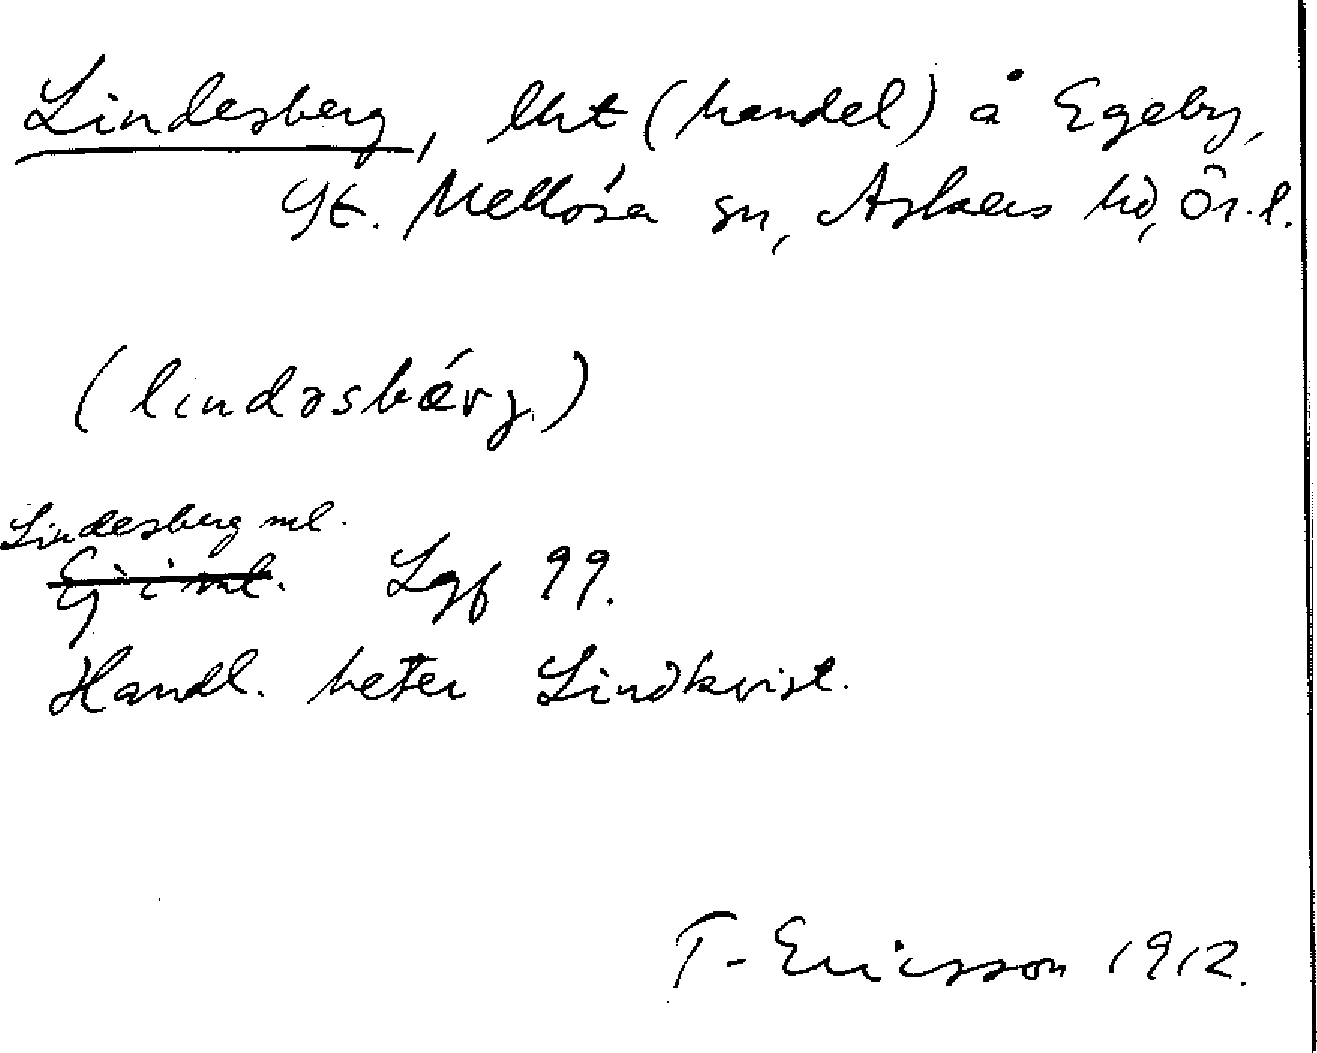 Lindesberg, lht (handel) å Egeby,
St. Mellösa sn, Askers hd, Ör. l.
(lindəsbǽrj.)
Lindesberg ml.
Ej i ml. Lgf 99.
Handl. heter Lindkvist.
T. Ericsson 1912.